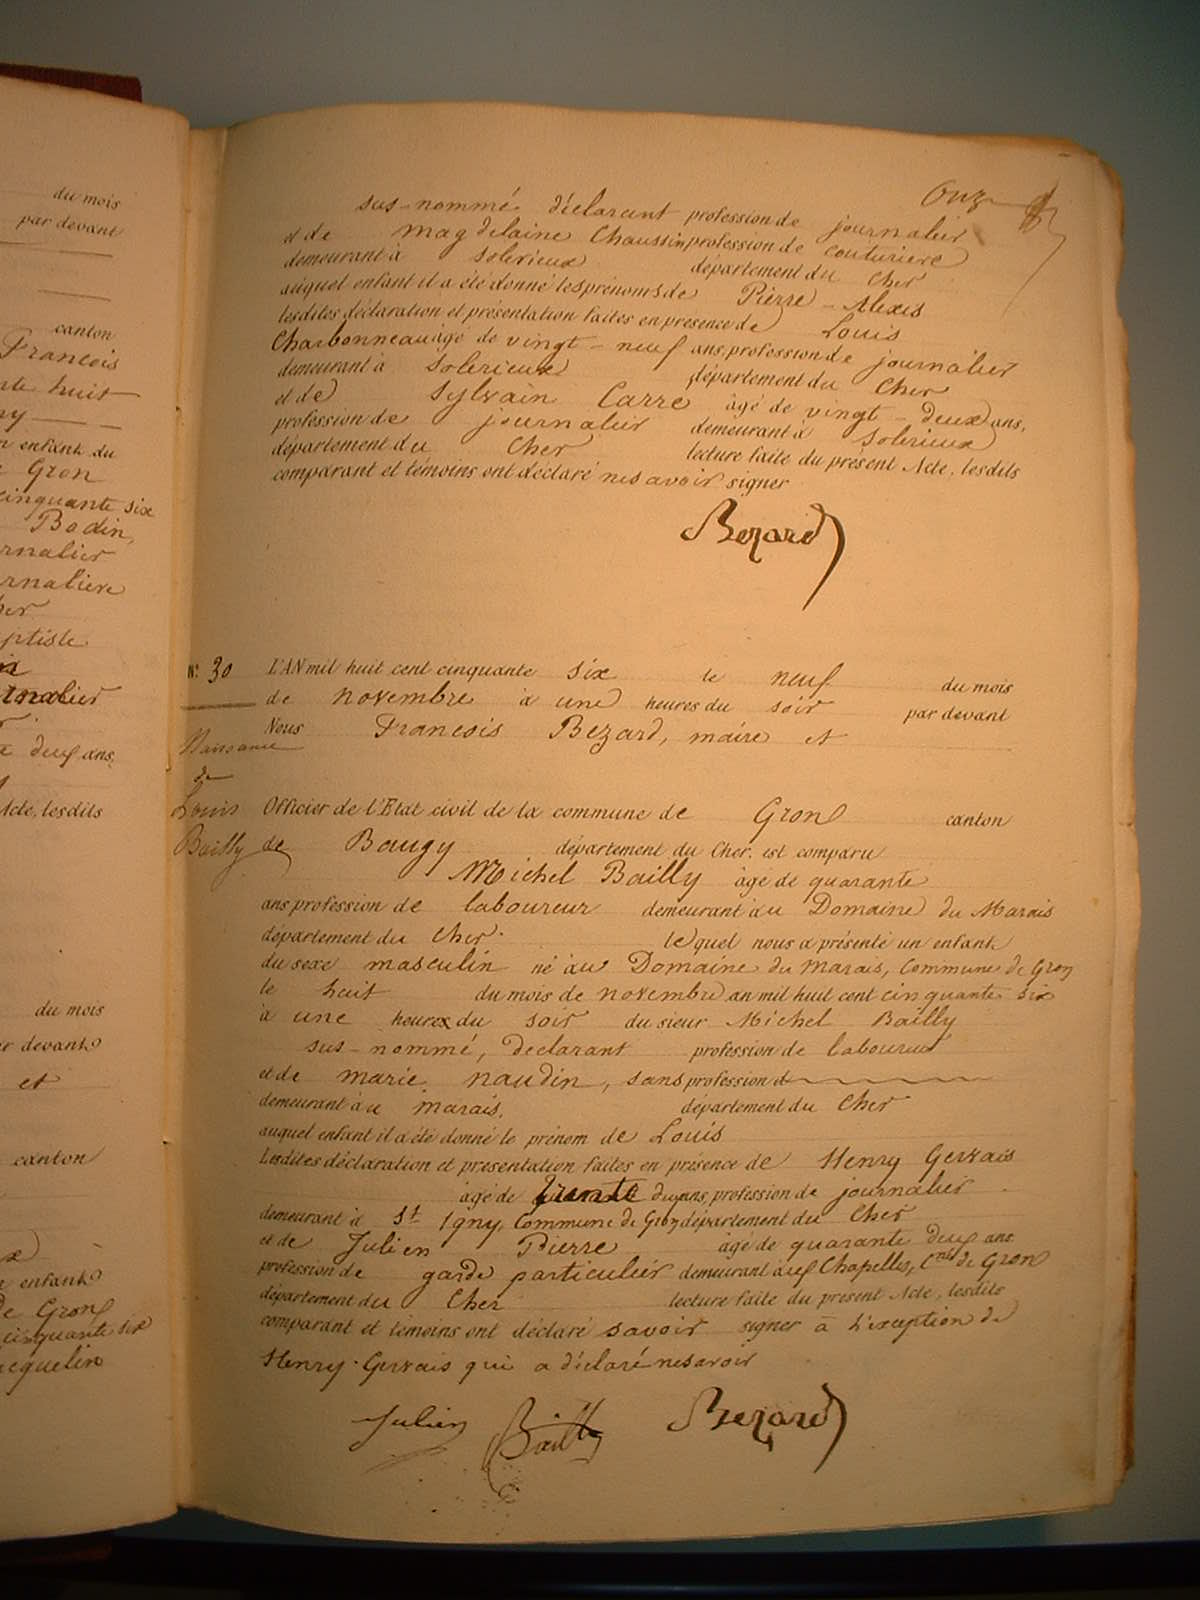 du mois
par devant
canton
Francois
huit
ny
enfant du
Gron
cinquante six
Bodin,
rnalier
rnaliere
her
ptiste
rnalier
deux ans,
Acte, lesdits
du mois
par devant
et
canton
enfant
de Gron
cinquante six
acquelin
Onze
sus-nommé déclarant profession de journalier
et de Magdelaine Chaussin profession de couturiere
demeurant à Solerieux département du Cher
auquel enfant il a été donné les prénoms de Pierre-Alexis
lesdites déclaration et présentation faites en présence de Louis
Charbonneau âgé de vingt-neuf ans, profession de journalier
demeurant à Solerieux département du Cher
et de Sylvain Carré âgé de vingt-deux ans,
profession de journalier demeurant à Solerieux
département du Cher lecture faite du présent Acte, lesdits
comparant et témoins ont déclaré ne savoir signer
Bezard
N° 30 L'AN mil huit cent cinquante six le neuf du mois
de novembre à une heures du soir par devant
Nous Francois Bezard, maire et
Naissance
de
Louis
Bailly
Officier de l'Etat civil de la commune de Gron canton
de Baugy département du Cher. est comparu
Michel Bailly âgé de quarante
ans profession de laboureur demeurant au Domaine du Marais
département du Cher. lequel nous a présenté un enfant
du sexe masculin né au Domaine du Marais, Commune de Gron
le huit du mois de novembre an mil huit cent cinquante six
à une heure du soir du sieur Michel Bailly
sus-nommé, déclarant profession de laboureur
et de Marie Naudin, sans profession d
demeurant au Marais, département du Cher
auquel enfant il a été donné le prénom de Louis
Lesdites déclaration et présentation faites en présence de Henry Gervais
âgé de trente deux ans, profession de journalier
demeurant à St Igny, Commune de Gron département du Cher
et de Julien Pierre âgé de quarante deux ans
profession de garde particulier demeurant aux Chapelles, Cne de Gron
département du Cher lecture faite du présent Acte, lesdits
comparant et témoins ont déclaré savoir signer à l'exception de
Henry Gervais qui a déclaré ne savoir
Julien Bailly Bezard